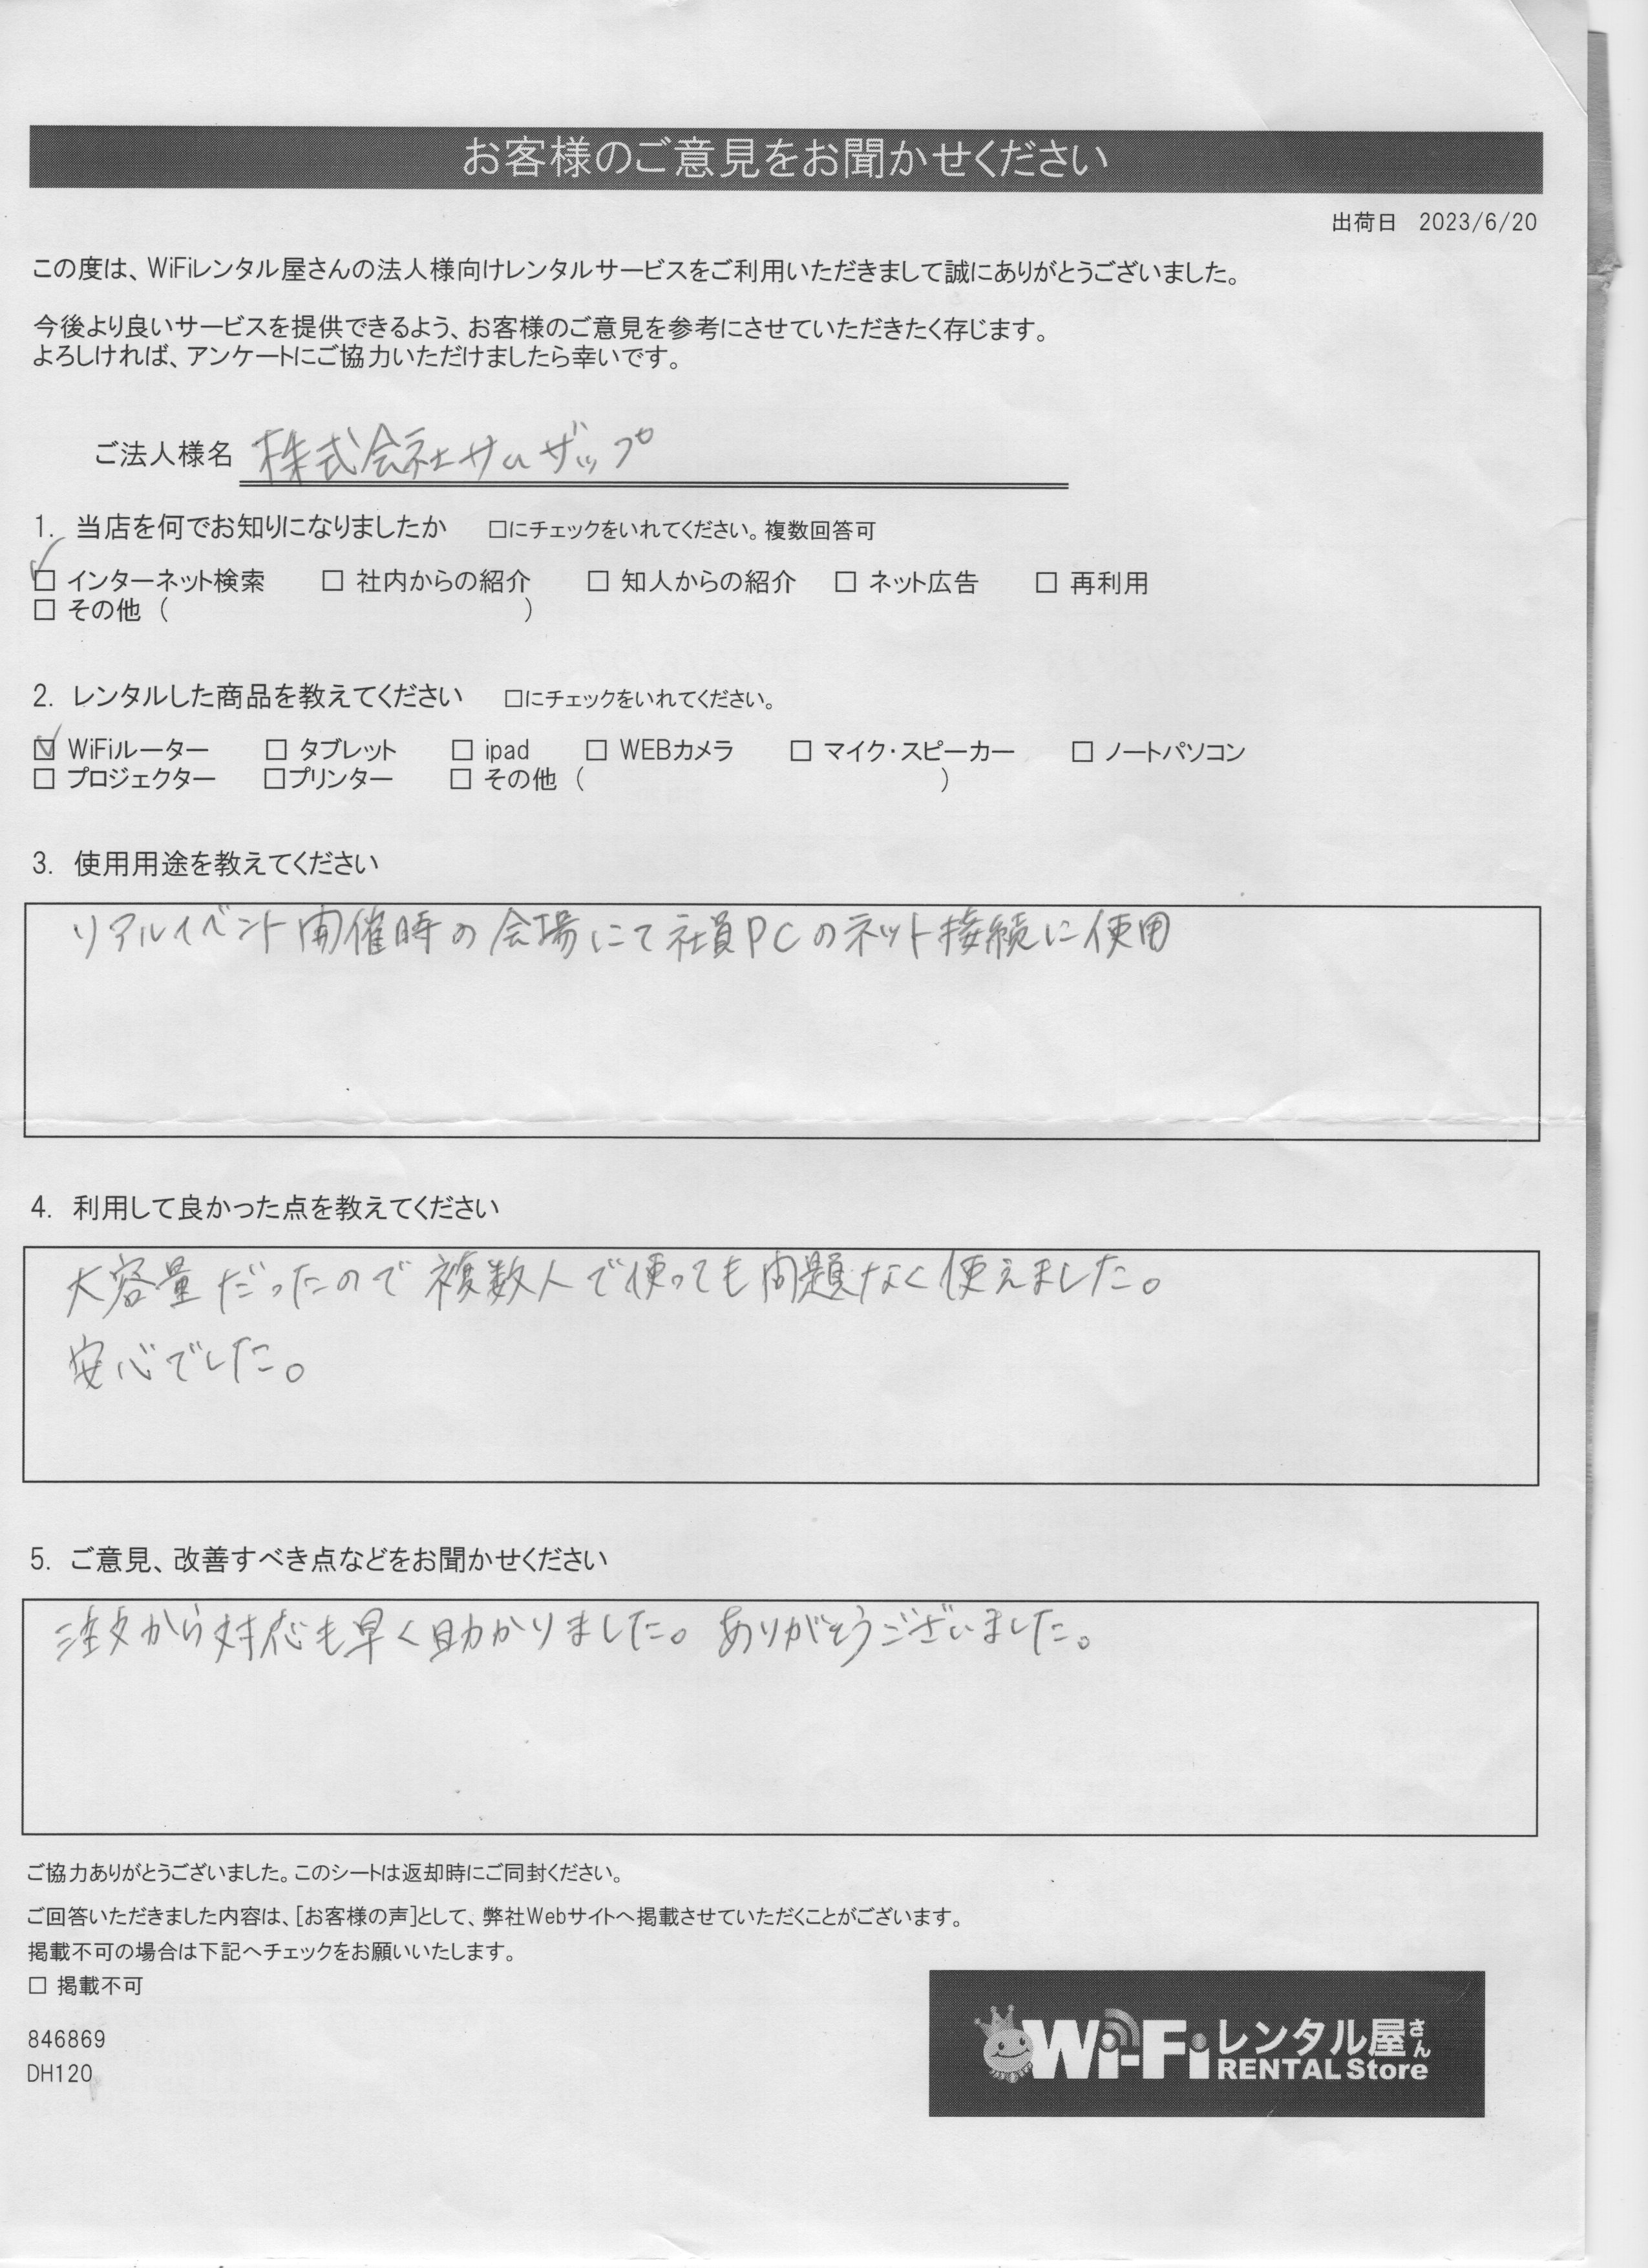 お客様のご意見をお聞かせください
出荷日 2023/6/20
この度は、WiFiレンタル屋さんの法人様向けレンタルサービスをご利用いただきまして誠にありがとうございました。
今後より良いサービスを提供できるよう、お客様のご意見を参考にさせていただきたく存じます。
よろしければ、アンケートにご協力いただけましたら幸いです。
ご法人様名 株式会社サムザップ
1. 当店を何でお知りになりましたか □にチェックをいれてください。複数回答可
☑ インターネット検索 □ 社内からの紹介 □ 知人からの紹介 □ ネット広告 □ 再利用
□ その他 ( )
2. レンタルした商品を教えてください □にチェックをいれてください。
☑ WiFiルーター □ タブレット □ ipad □ WEBカメラ □ マイク・スピーカー □ ノートパソコン
□ プロジェクター □プリンター □ その他 ( )
3. 使用用途を教えてください
リアルイベント開催時の会場にて社員PCのネット接続に使用
4. 利用して良かった点を教えてください
大容量だったので複数人で使っても問題なく使えました。
安心でした。
5. ご意見、改善すべき点などをお聞かせください
注文から対応も早く助かりました。ありがとうございました。
ご協力ありがとうございました。このシートは返却時にご同封ください。
ご回答いただきました内容は、[お客様の声]として、弊社Webサイトへ掲載させていただくことがございます。
掲載不可の場合は下記へチェックをお願いいたします。
□ 掲載不可
846869
DH120
Wi-Fiレンタル屋さん
RENTAL Store